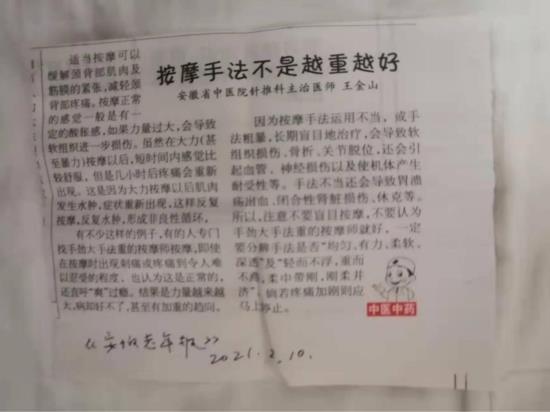 按摩手法不是越重越好
安徽省中医院针推科主治医师 王金山
适当按摩可以
缓解颈背部肌肉及
筋膜的紧张，减轻颈
背部疼痛。按摩正常
的感觉一般是有一
定的酸胀感，如果力量过大，会导致
软组织进一步损伤。虽然在大力(甚
至暴力)按摩以后，短时间内感觉比
较舒服，但是几小时后疼痛会重新
出现。这是因为大力按摩以后肌肉
发生水肿，症状重新出现，这样反复
按摩，反复水肿，形成非良性循环。
有不少这样的例子，有的人专门
找手劲大手法重的按摩师按摩，即使
在按摩时出现刺痛或疼痛到令人难
以忍受的程度，也认为这是正常的，
还直呼“爽”过瘾。结果是力量越来越
大，病却好不了，甚至有加重的趋向。
因为按摩手法运用不当，或手
法粗暴，长期盲目地治疗，会导致软
组织损伤、骨折、关节脱位，还会引
起血管、神经损伤以及使机体产生
耐受性等。手法不当还会导致胃溃
疡出血、闭合性肾脏损伤、休克等。
所以，注意不要盲目按摩，不要认为
手劲大手法重的按摩师就好，一定
要分辨手法是否“均匀、有力、柔软、
深透”及“轻而不浮，重而
不滞，柔中带刚，刚柔并
济”，倘若疼痛加剧则应
马上停止。
中医中药
《安徽老年报》
2021.2.10.